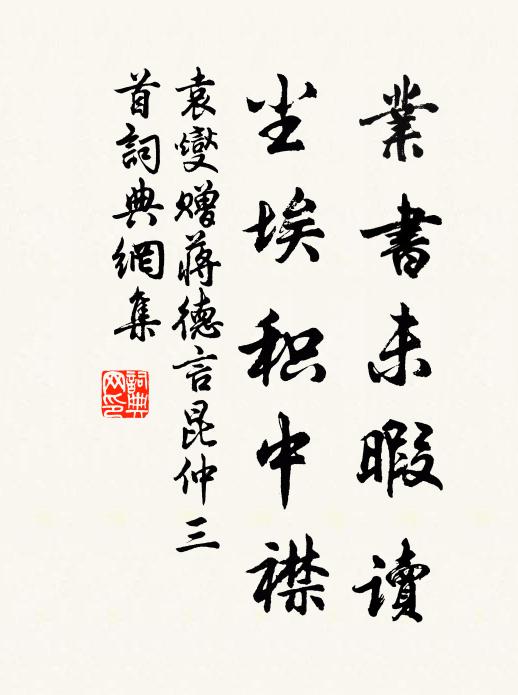 業書未暇讀
尘埃积中襟
袁燮赠蒋德言昆仲三
首詞典網集
詞典网印